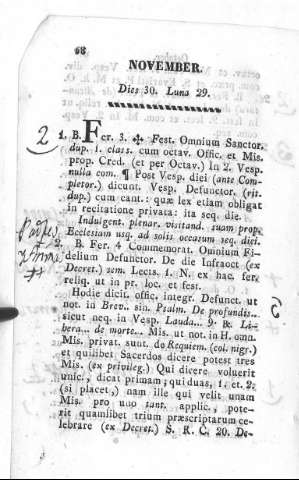 68
NOVEMBER.
Dies 30. Luna 29.
2
1. B. Fer. 3. ✠ Fest. Omnium Sanctor.
dup. 1. class. cum octav. Offic. et Mis.
prop. Cred. (et per Octav.) In 2. Vesp.
nulla com. ¶ Post Vesp. diei (ante Com-
pletor.) dicunt. Vesp. Defunctor. (rit.
dup.) cum cant.: quæ lex etiam obligat
in recitatione privata: ita seq. die.
Indulgent. plenar. visitand. suam prop.
Ecclesiam usq. ad solis occasum seq. diei.
2. B. Fer. 4 Commemorat. Omnium Fi-
delium Defunctor. De die Infraoct (ex
Decret.) sem. Lects. 1. N. ex hac. fer.
reliq. ut in pr. loc. et fest.
Hodie dicit. offic. integr. Defunct. ut
not. in Brev.. sin. Psalm. De profundis..
sicut neq. in Vesp. Lauda... 9. R. Li-
bera... de morte... Mis. ut not. in H. omn.
Mis. privat. sunt. de Requiem. (col. nigr.)
et quilibet Sacerdos dicere potest tres
Mis. (ex privileg.) Qui dicere voluerit
unic., dicat primam; qui duas, 1. et 2.
(si placet), nam ille qui velit unam
Mis. pro uno tant. applic., pote-
rit quamlibet trium præscriptarum ce-
lebrare (ex Decret.) S. R. C. 20. De-